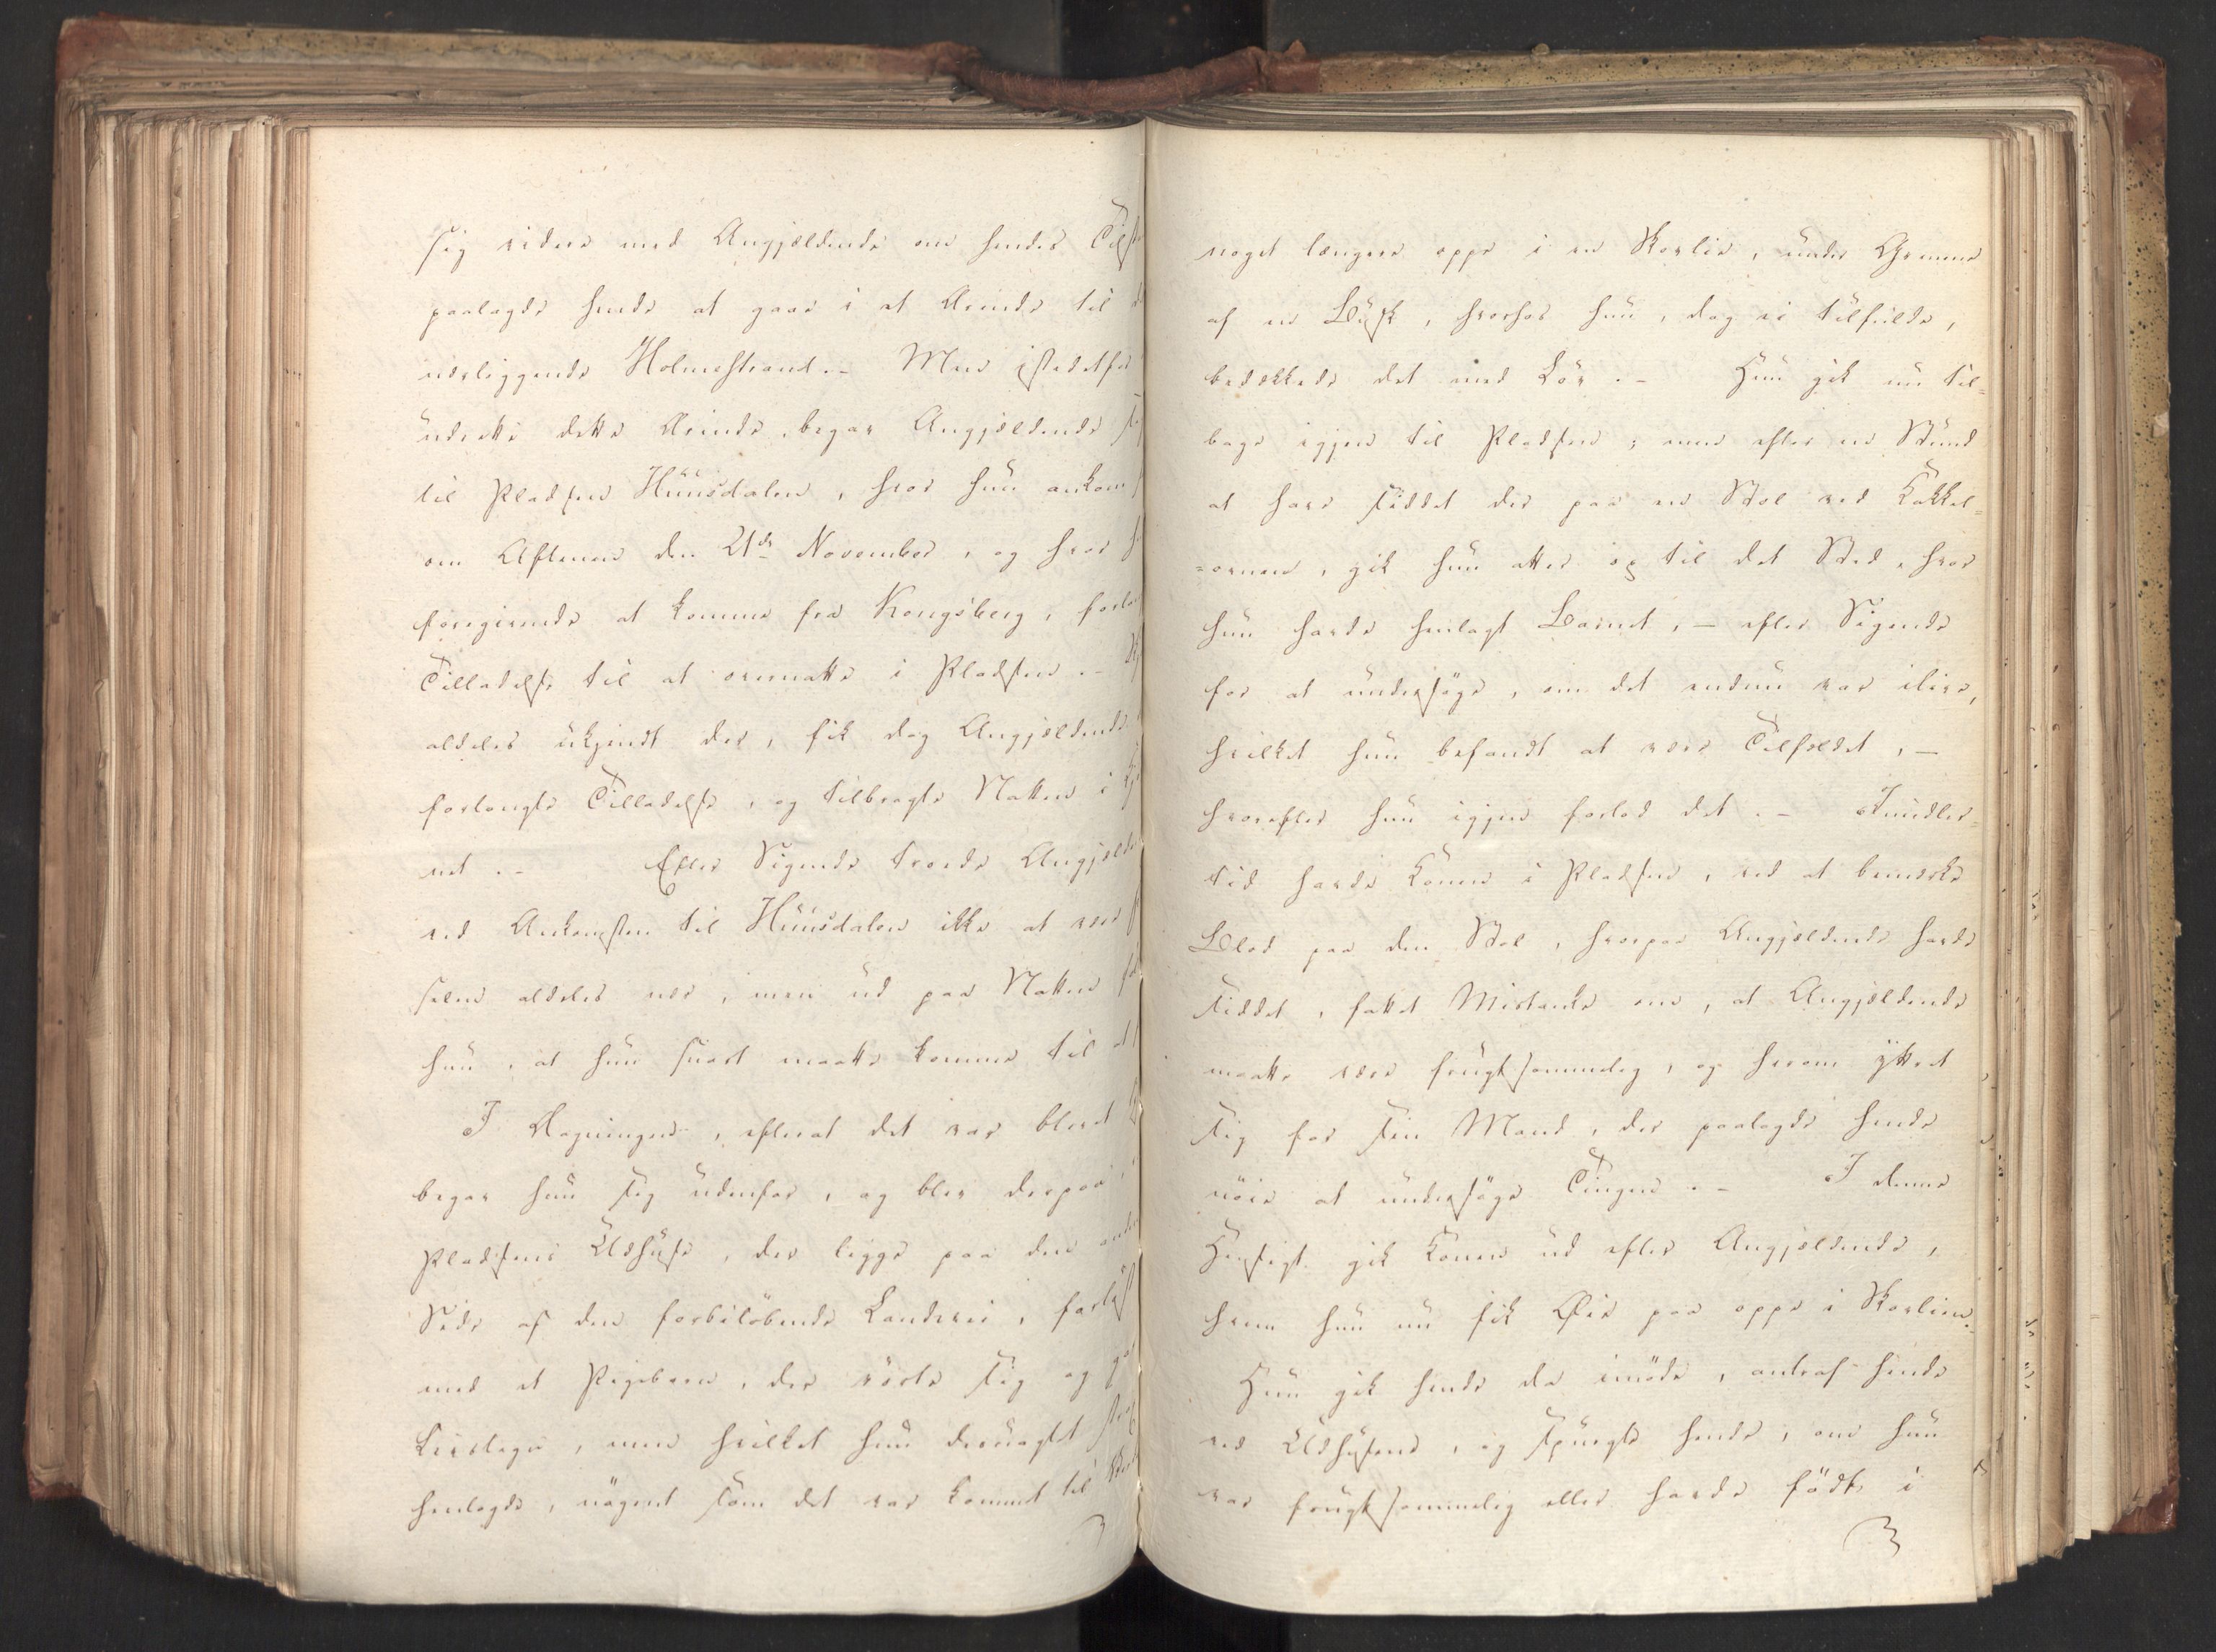 sig videre med Angjældende om hendes Tilst
paalagde hende at gaae i et Ærinde til d
nærliggende Holmestrand. – Men istedetfor
udrette dette Ærinde, begav Angjældende si
til Pladsen Huusdalen, hvor hun ankom
om Aftenen den 21de November, og hvor h
foregivende at komme fra Kongsberg, forlan
Tilladelse til at overnatte i Pladsen. –
aldeles ukjendt der, fik dog Angjældende
forlangte Tilladelse, og tilbragte Natten i Kjø
net. – Efter Sigende troede Angjælde
ved Ankomsten til Huusdalen ikke at være
selen aldeles nær, men ud paa Natten føl
hun, at hun snart maatte komme til at
I Dagningen, efterat det var blevet
begav hun sig udenfor, og blev derpaa i
Pladsens Ildhuse, der ligger paa den anden
Side af den forbiløbende Landevei, forløst
med et Pigebarn, der rørte sig og gav
Livstegn, men hvilket hun desuagtet strax
henlagde, nøgent som det var kommet til Verd
noget længere oppe i en Skovlie, under Grenene
af en Busk, hvorhos hun, dog ei tilfulde,
bedækkede det med Løv. – Hun gik nu til=
bage igjen til Pladsen; men efter en Stund
at have siddet der paa en Stol ved Kakkel=
=ovnen, gik hun atter op til det Sted, hvor
hun havde henlagt Barnet, – efter Sigende
for at undersøge, om det endnu var ilive,
hvilket hun befandt at være Tilfældet, –
hvorefter hun igjen forlod det. – Imidler=
tid havde Konen i Pladsen, ved at bemærke
Blod paa den Stol, hvorpaa Angjældende havde
siddet, fattet Mistanke om, at Angjældende
maatte være frugtsommelig, og herom yttret
sig for sin Mand, der paalagde hende
nøie at undersøge Tingen. – I denne
Hensigt gik Konen ud efter Angjældende,
hvem hun nu fik Øie paa oppe i Skovlien.
Hun gik hende da imøde, antraf hende
ved Ildhusene, og spurgte hende, om hun
var frugtsommelig eller havde født i